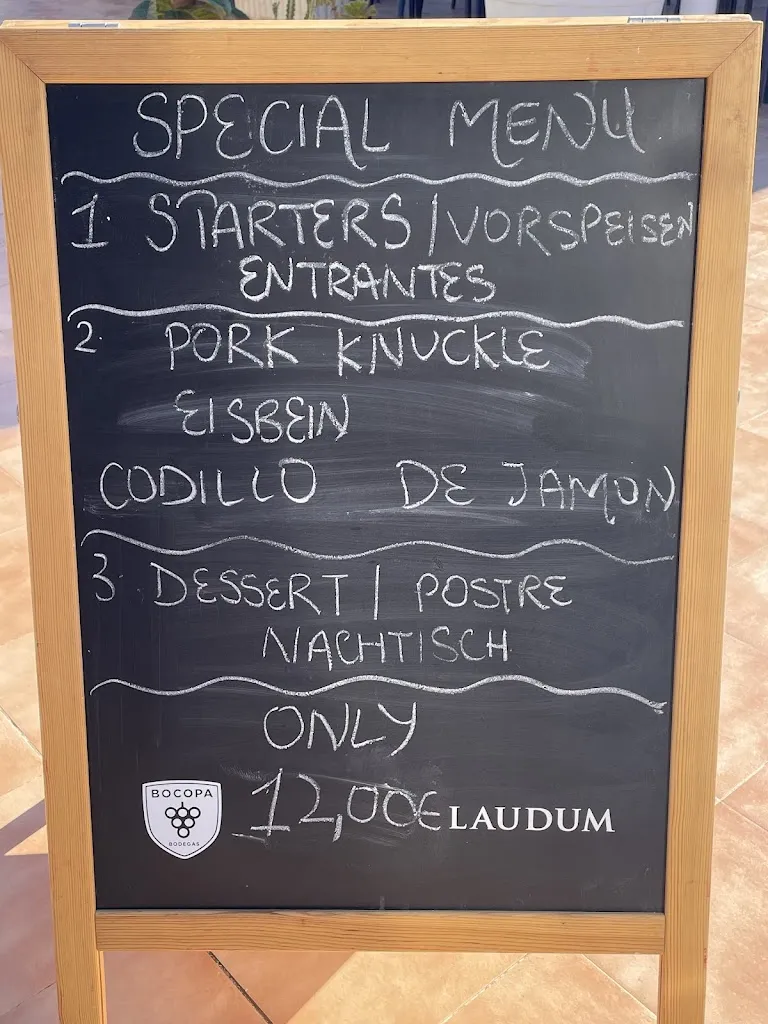 SPECIAL MENU
1. STARTERS / VORSPEISEN
ENTRANTES
2. PORK KNUCKLE
EISBEIN
CODILLO DE JAMON
3. DESSERT / POSTRE
NACHTISCH
ONLY
12,00€
BOCOPA
BODEGAS
LAUDUM